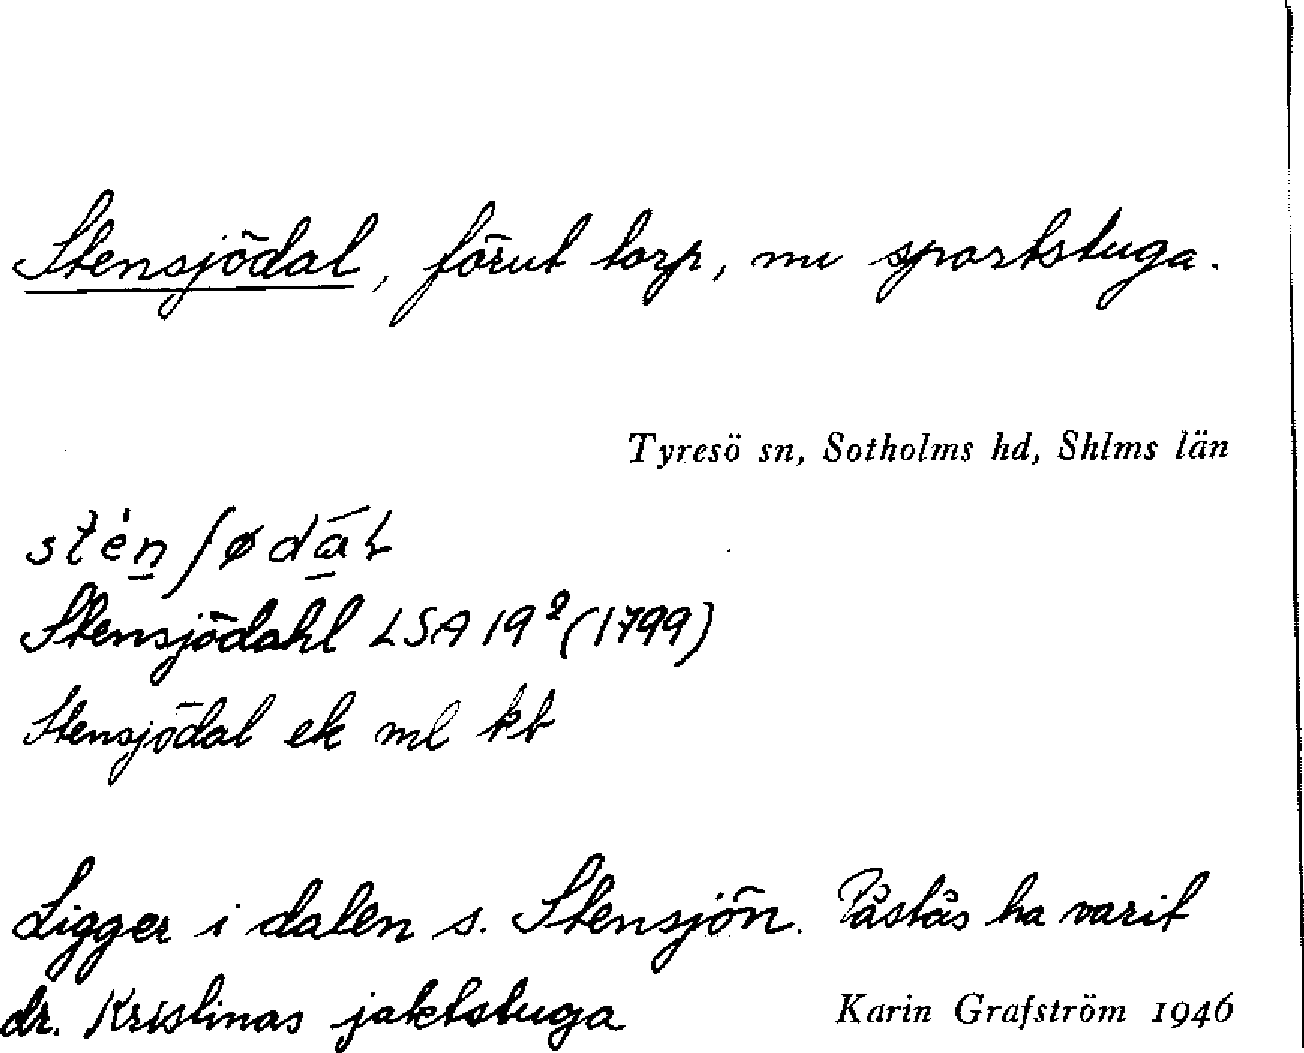 Stensjödal, förut torp, nu sportstuga.
Tyresö sn, Sotholms hd, Shlms län
Stensjödahl LSA 19² (1799)
Stensjödal ek ml kt
Ligger i dalen s. Stensjön. Påstås ha varit
dr. Kristinas jaktstuga
Karin Grafström 1946